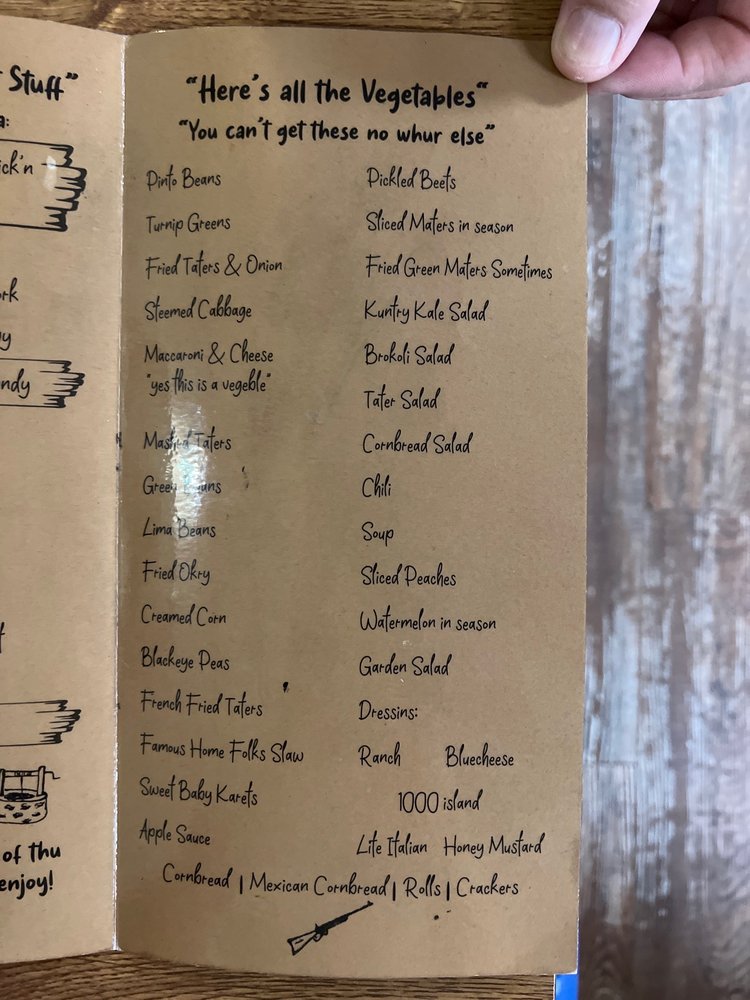 Stuff”
a:
ck'n
ork
y
ndy
of thu
enjoy!
“Here's all the Vegetables“
“You can't get these no whur else”
Pinto Beans
Turnip Greens
Fried Taters & Onion
Steemed Cabbage
Maccaroni & Cheese
"yes this is a vegeble"
Mashed Taters
Green Beans
Lima Beans
Fried Okry
Creamed Corn
Blackeye Peas
French Fried Taters
Famous Home Folks Slaw
Sweet Baby Karets
Apple Sauce
Pickled Beets
Sliced Maters in season
Fried Green Maters Sometimes
Kuntry Kale Salad
Brokoli Salad
Tater Salad
Cornbread Salad
Chili
Soup
Sliced Peaches
Watermelon in season
Garden Salad
Dressins:
Ranch Bluecheese
1000 island
Lite Italian Honey Mustard
Cornbread | Mexican Cornbread | Rolls | Crackers